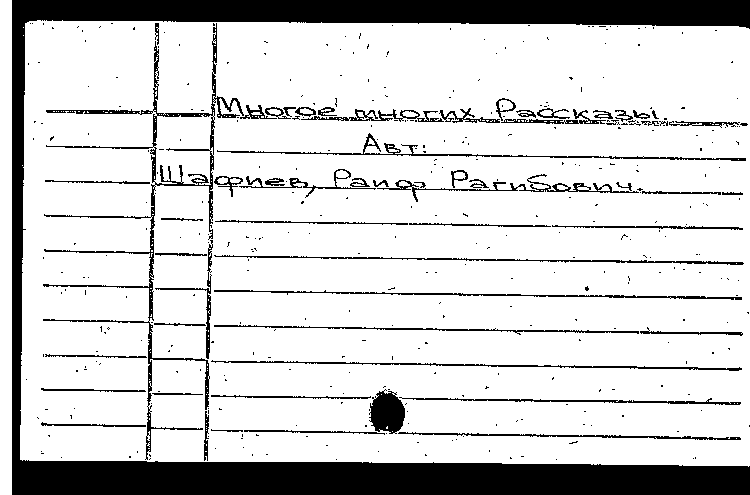 Многое многих. Рассказы.
Авт:
Шафиев, Раиф Рагибович.